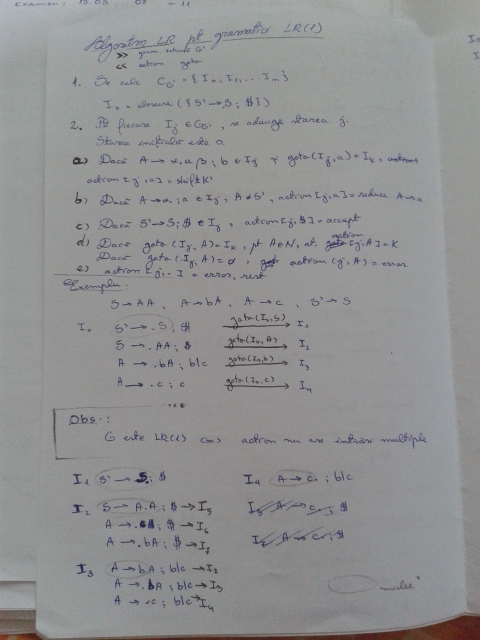 Examen: 13.05
Algoritm LR pt gramatici LR(1)
>> gram extinsă G'
<< action goto
1. Se calc C_G' = { I0, I1, ... Im }
I0 = closure ({ S' → .S; $ })
2. Pt fiecare Ij ∈ CG', se adauge starea j.
Starea inițială este 0
a) Dacă A → α.aβ; b ∈ Ij și goto(Ij, a) = Ik,
action [j, a] = shift k
b) Dacă A → α.; a ∈ Ij, A ≠ S', action [j, a] = reduce A → α
c) Dacă S' → S.; $ ∈ Ij, action [j, $] = accept
d) Dacă goto (Ij, A) = Ik, pt A ∈ N, at. goto action [j, A] = k
Dacă goto (Ij, A) = ∅, action (j, A) = error
e) action [j, .] = error, rest
Exemplu:
S → AA, A → bA, A → c, S' → S
I0 S' → .S; $ goto(I0, S) I1
S → .AA; $ goto(I0, A) I2
A → .bA; b|c goto(I0, b) I3
A → .c; c goto(I0, c) I4
Obs.:
G este LR(1) <=> action nu are intrări multiple
I1 S' → S.; $ I4 A → c.; b|c
I2 S → A.A; $ → I5 I5 A → c.; $
A → .bA; $ → I6
A → .bA; $ → I7 A → c.; $
I3 A → b.A; b|c → I8
A → .bA; b|c → I3
A → .c; b|c → I4
nuclee